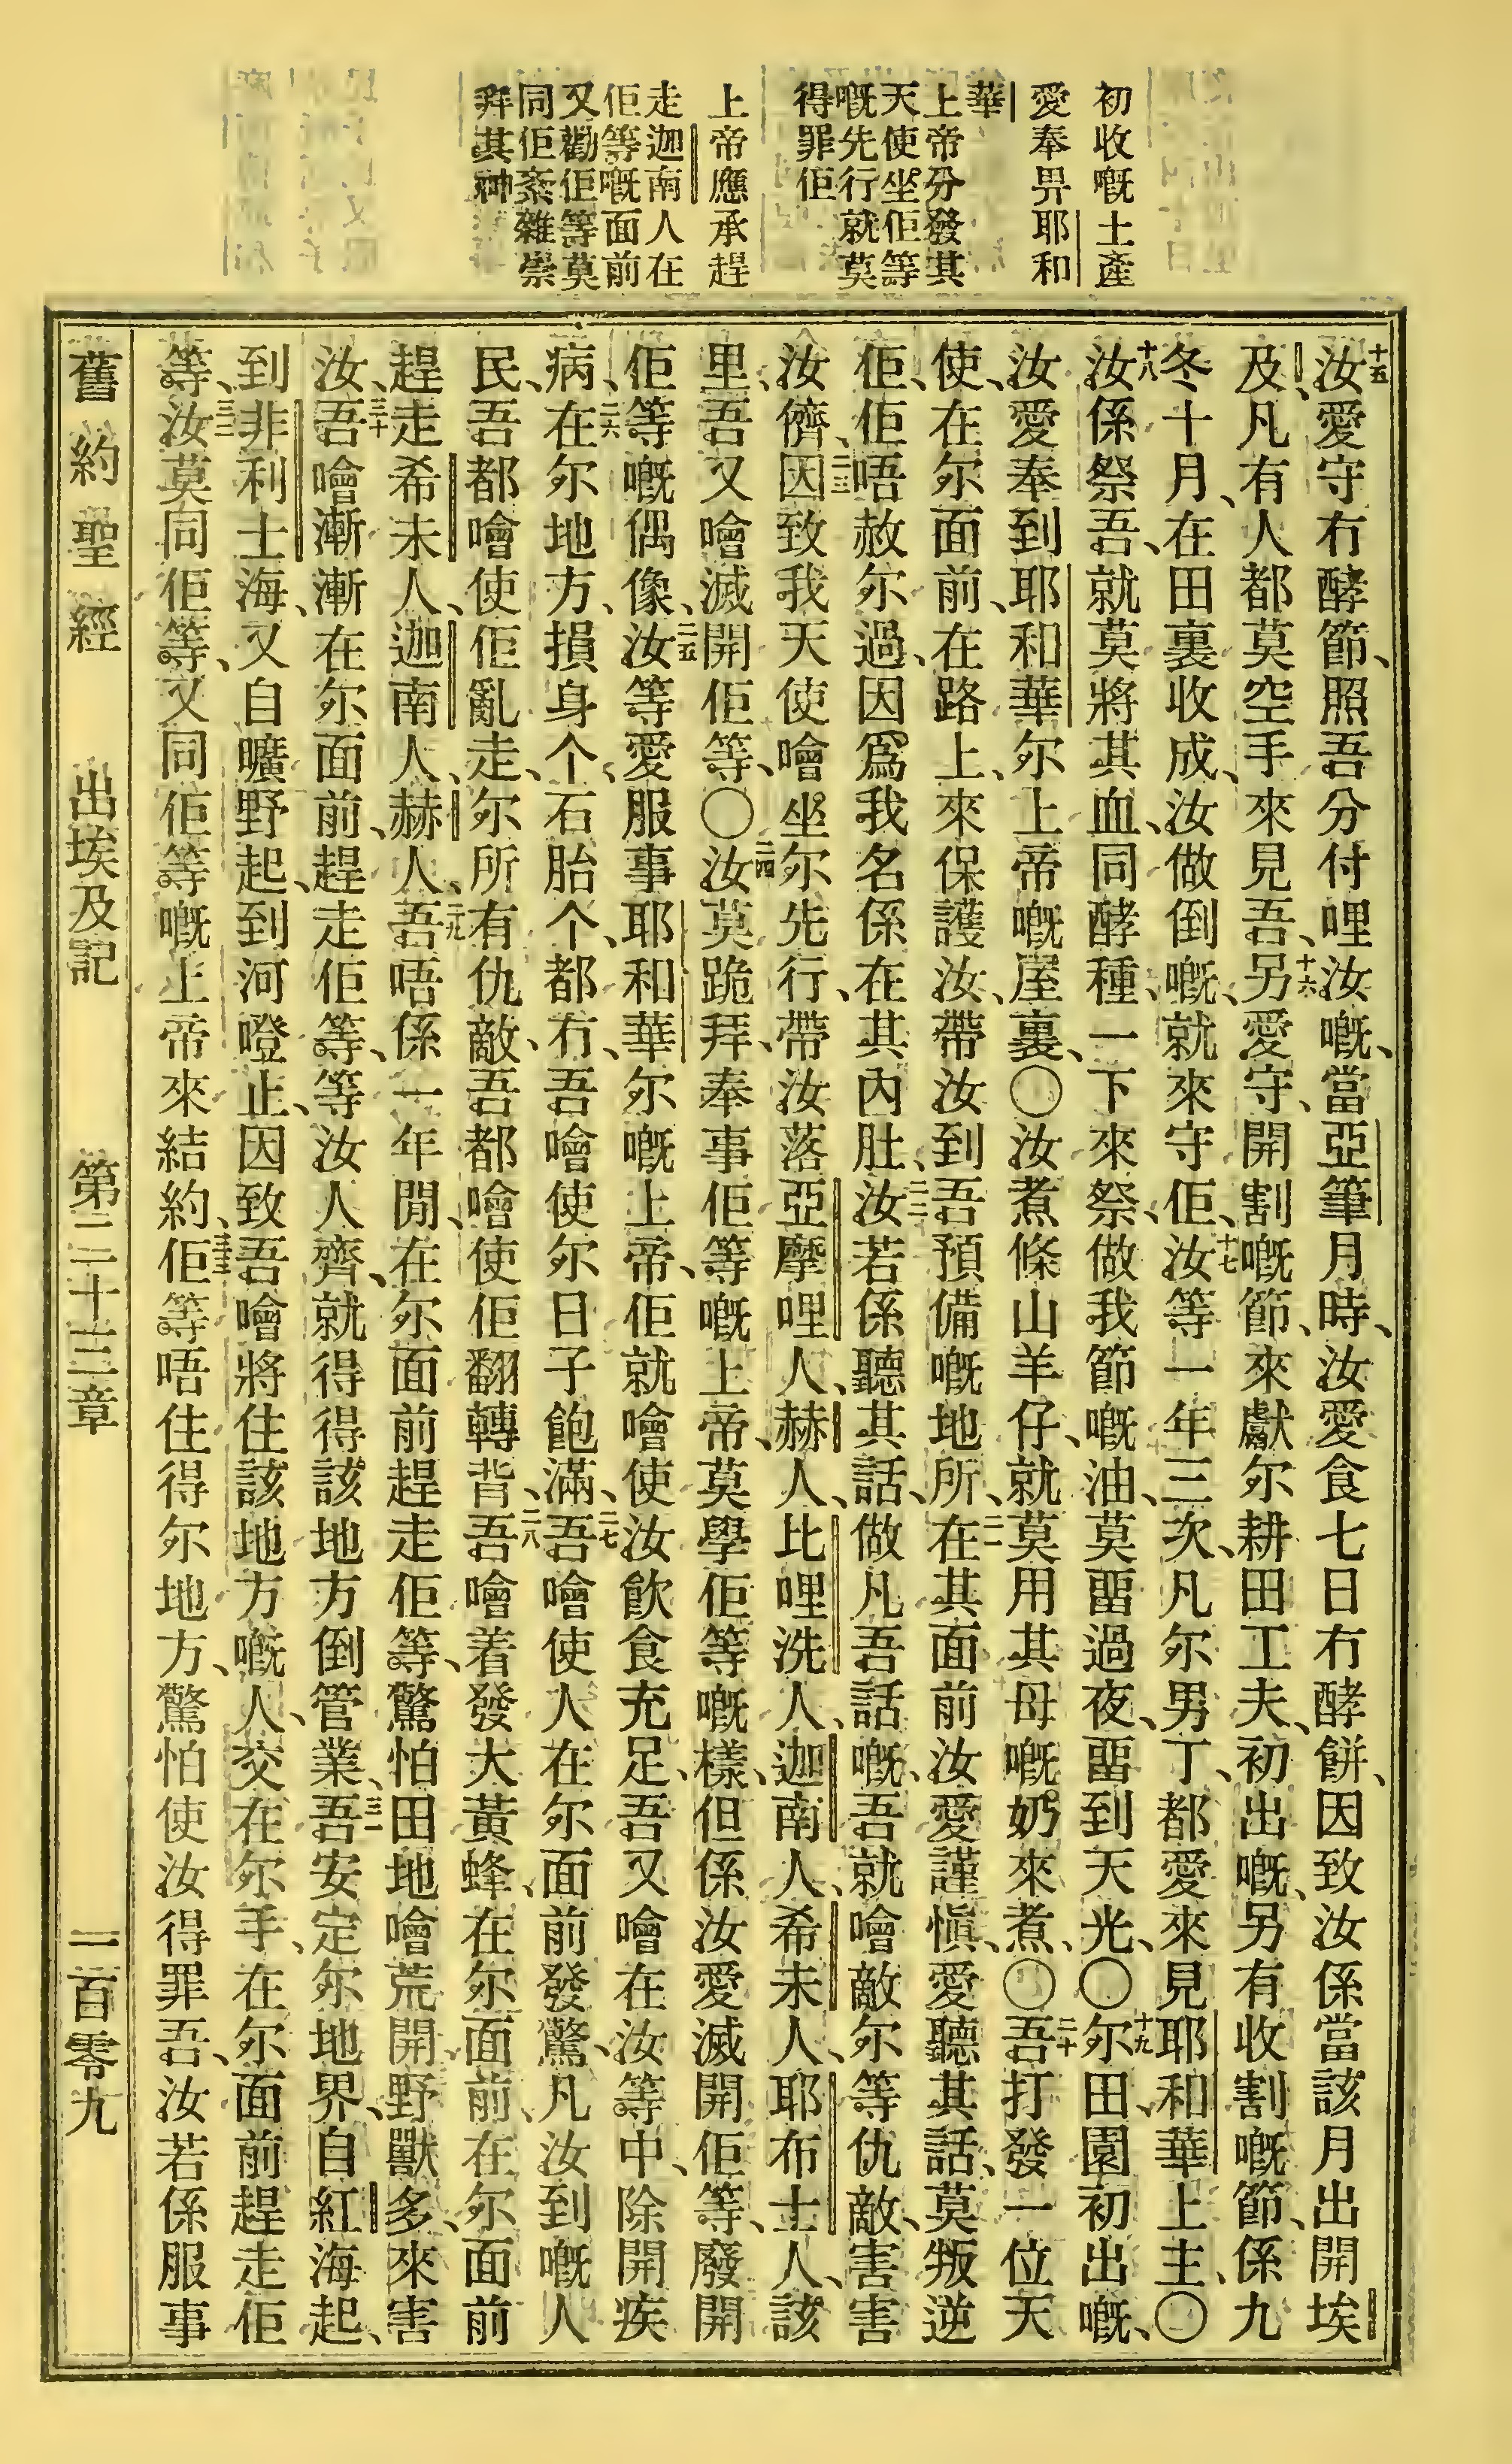 初收嘅土產
愛奉畀耶和
華
上帝分發其
天使坐佢等
嘅先行就莫
得罪佢
上帝應承趕
走迦南人在
佢等嘅面前
又勸佢等莫
同佢紊雜崇
拜其神
十五汝愛守冇酵節、照吾分付哩汝嘅、當亞筆月時、汝愛食七日冇酵餅、因致汝係當該月出開埃
及、凡有人都莫空手來見吾、十六另愛守、開割嘅節、來獻尔耕田工夫、初出嘅、另有收割嘅節、係九
冬十月、在田裏收成、汝做倒嘅、就來守佢、十七汝等一年三次、凡尔男丁、都愛來見耶和華上主、〇
十八汝係祭吾、就莫將其血、同酵種、一下來祭、做我節嘅油、莫畱過夜、畱到天光、〇十九尔田、園初出嘅、
汝愛奉到耶和華尔上帝嘅屋裏、〇汝煮條山羊仔、就莫用其母嘅奶來煮、〇二十吾打發一位天
使、在尔面前、在路上、來保護汝、帶汝到吾預備嘅地所、二一在其面前汝愛謹慎、愛聽其話、莫叛逆
佢、佢唔赦尔過、因爲我名係在其內肚、二二汝若係聽其話、做凡吾話嘅、吾就噲敵尔等仇敵、害害
汝儕、二三因致我天使噲坐尔先行、帶汝落亞摩哩人、赫人、比哩洗人、迦南人、希未人、耶布士人、該
里、吾又噲滅開佢等、〇二四汝莫跪拜、奉事佢等嘅上帝、莫學佢等嘅樣、但係汝愛滅開佢等、廢開
佢等嘅偶像、二五汝等愛服事耶和華尔嘅上帝、佢就噲使汝飲食充足、吾又噲在汝等中、除開疾
病、二六在尔地方、損身个、石胎个、都冇、吾噲使尔日子飽滿、二七吾噲使人在尔面前發驚、凡汝到嘅人
民、吾都噲使佢亂走、尔所有仇敵、吾都噲使佢翻轉背、二八吾噲着發大黃蜂、在尔面前、在尔面前
趕走希未人、迦南人、赫人、二九吾唔係一年閒、在尔面前趕走佢等、驚怕田地噲荒開、野獸多、來害
汝、三十吾噲漸漸在尔面前、趕走佢等、等汝人齊、就得得該地方倒管業、三一吾安定尔地界、自紅海起、
到非利士海、又自曠野起、到河嶝止、因致吾噲將住該地方嘅人、交在尔手、在尔面前趕走佢
等、三二汝莫同佢等、又同佢等嘅上帝來結約、三三佢等唔住得尔地方、驚怕使汝得罪吾、汝若係服事
舊約聖經 出埃及記 第二十三章 一百零九